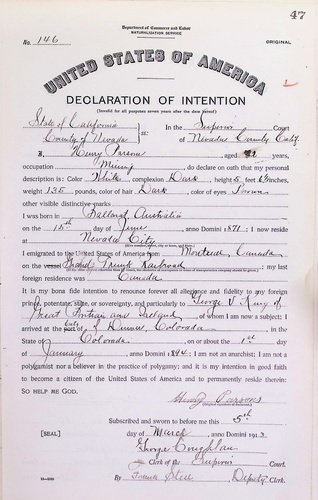 47
Department of Commerce and Labor
NATURALIZATION SERVICE
No. 146
ORIGINAL
UNITED STATES OF AMERICA
DECLARATION OF INTENTION
(Invalid for all purposes seven years after the date hereof)
State of California
County of Nevada ss:
In the Superior Court
of Nevada County Calif.
I, Henry Parsons, aged years,
occupation Mining, do declare on oath that my personal
description is: Color White, complexion Dark, height 5 feet inches,
weight 135 pounds, color of hair Dark, color of eyes Brown
other visible distinctive marks
I was born in Ballarat, Australia
on the 15th day of June, anno Domini 1871; I now reside
at Nevada City
I emigrated to the United States of America from Montreal, Canada
on the vessel Grand Trunk Railroad; my last
foreign residence was Canada
It is my bona fide intention to renounce forever all allegiance and fidelity to any foreign
prince, potentate, state, or sovereignty, and particularly to George V King of
Great Britain and Ireland, of whom I am now a subject; I
arrived at the port of Denver, Colorado, in the
State of Colorado, on or about the 1st day
of January, anno Domini 1894; I am not an anarchist; I am not a
polygamist nor a believer in the practice of polygamy; and it is my intention in good faith
to become a citizen of the United States of America and to permanently reside therein:
SO HELP ME GOD.
Henry Parsons
Subscribed and sworn to before me this 5th
[SEAL] day of March, anno Domini 1913
George Coughlan
Clerk of the Superior Court.
By Steel, Deputy Clerk.